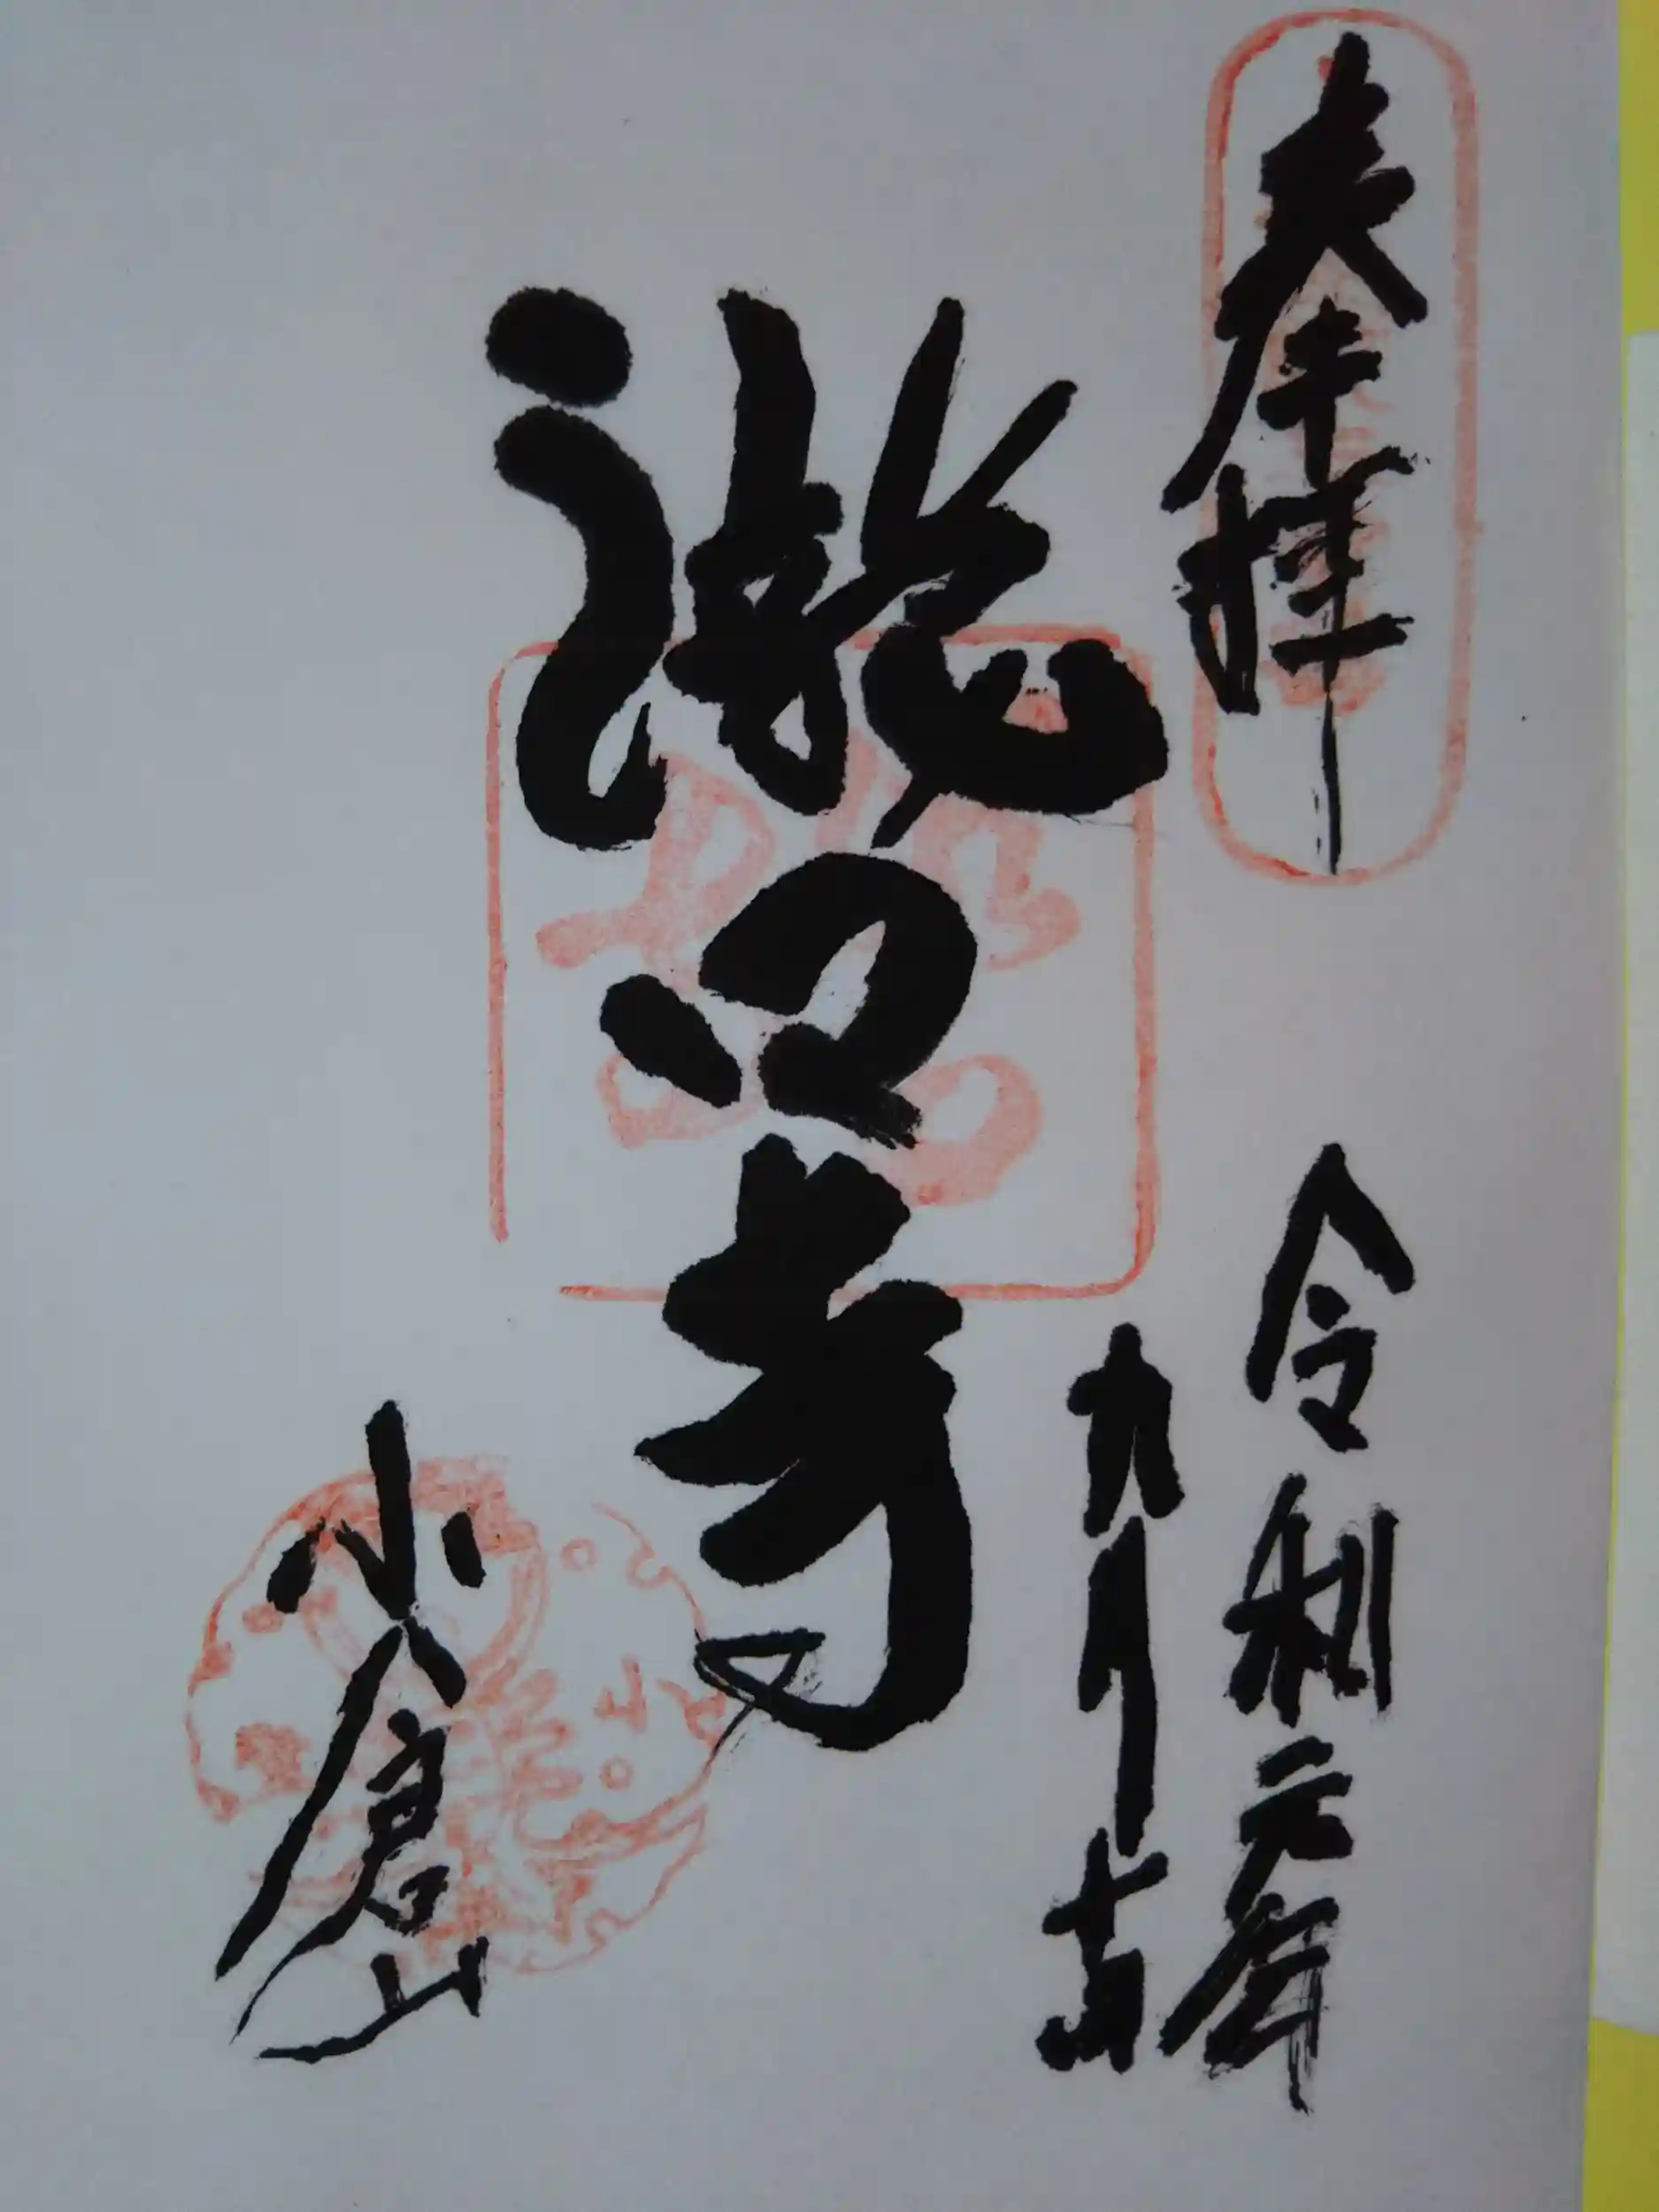 奉拝
令和元年
九月吉日
瀧口寺
小倉山